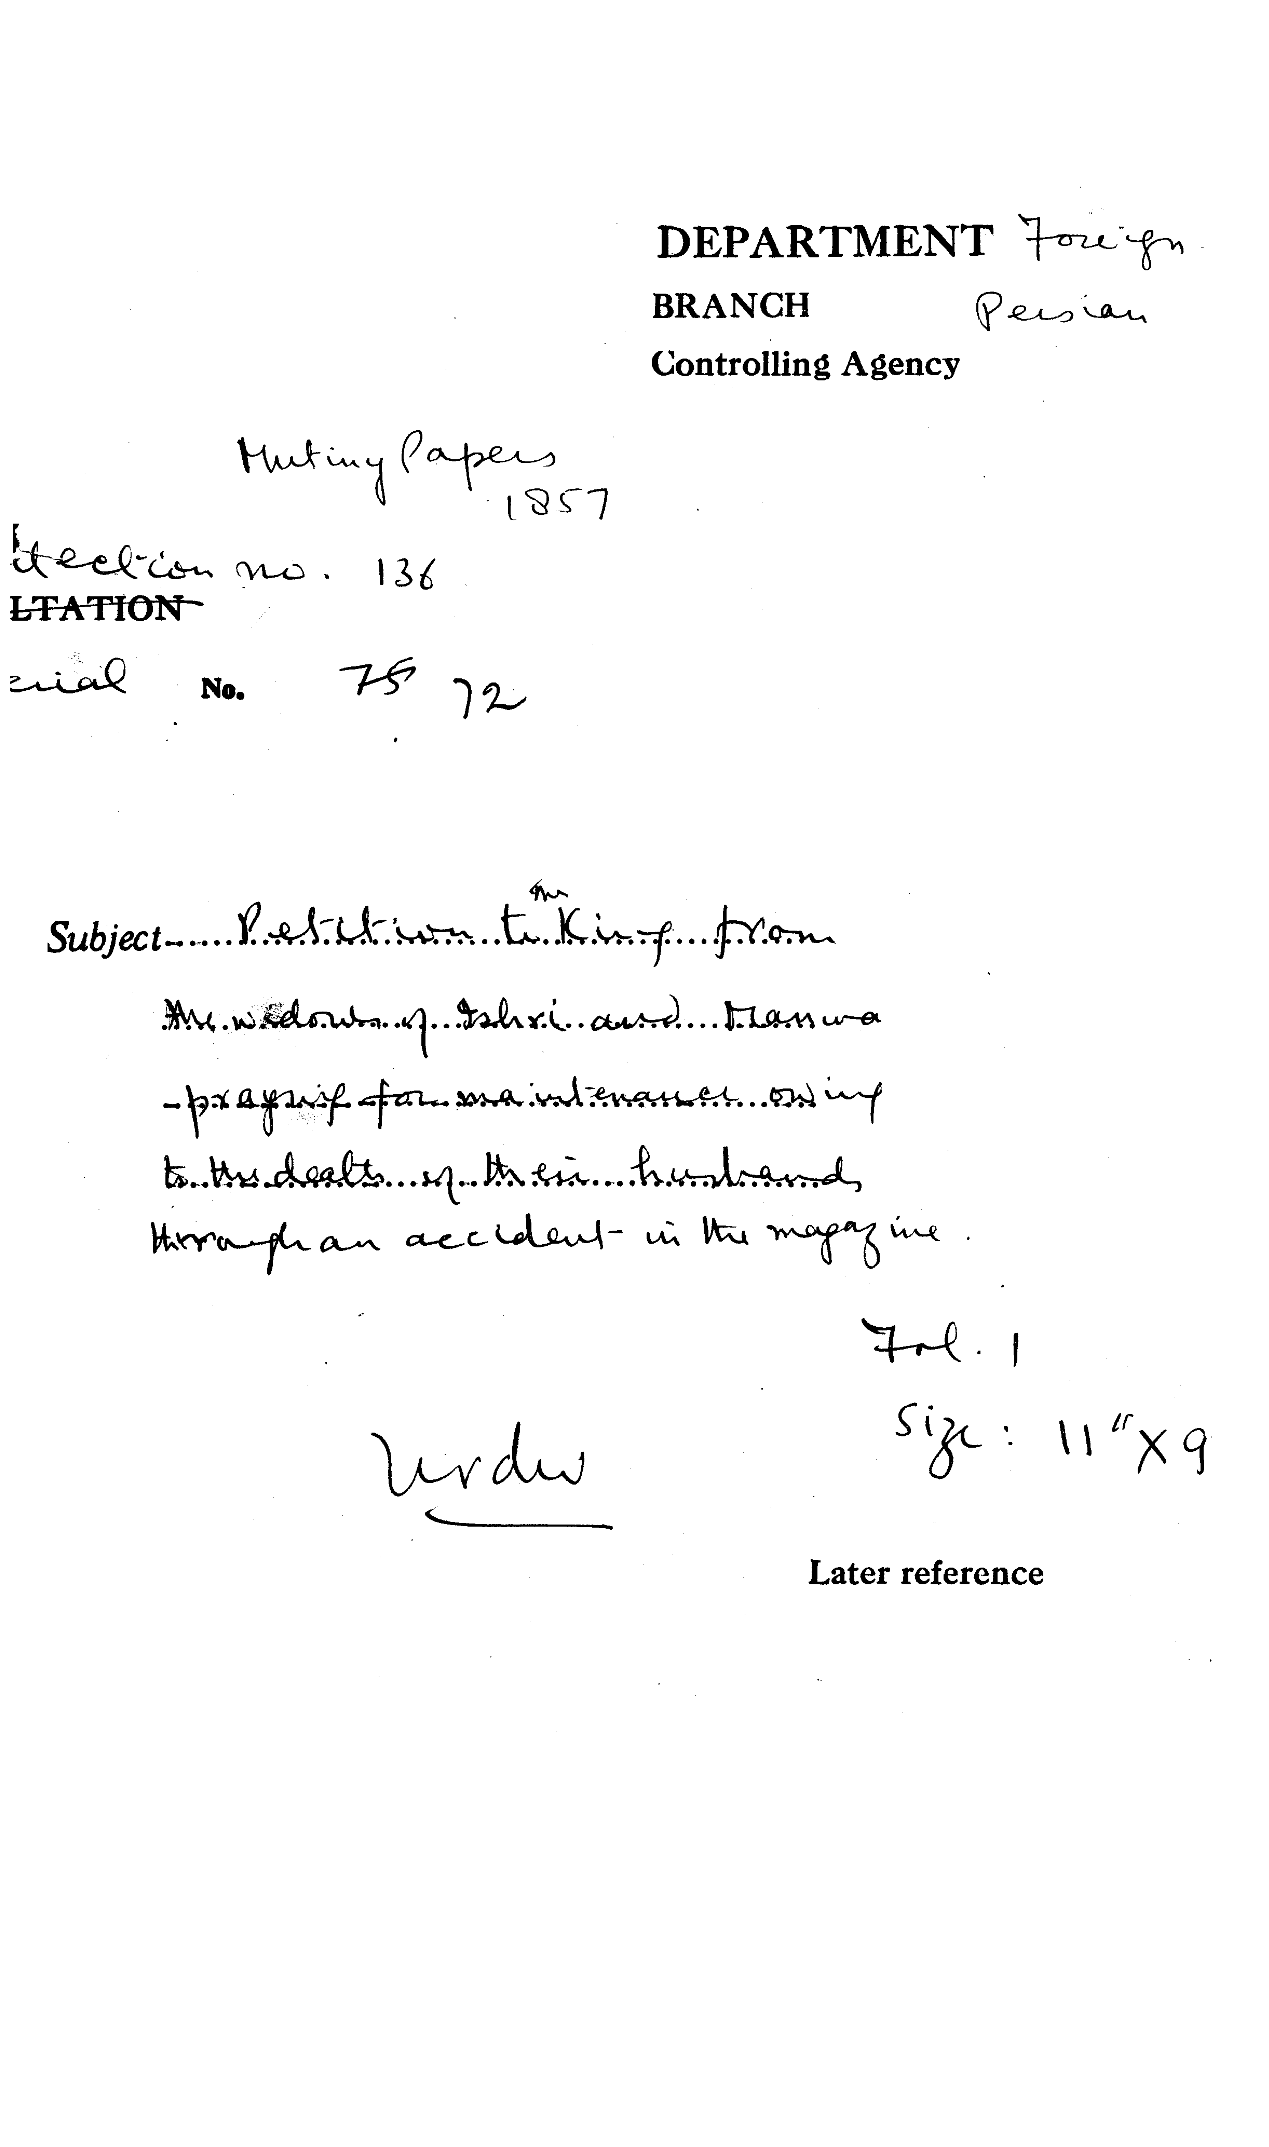 DEPARTMENT Foreign
BRANCH Persian
Controlling Agency
Mutiny Papers
1857
llection no. 136
LTATION
erial No. 75 72
Subject......Petition to the King from
the widows of Ishri and Manswa
- praying for maintenance owing
to the death of their husbands
through an accident in the magazine.
Fol. 1
Size: 11" X 9
Urdu
Later reference